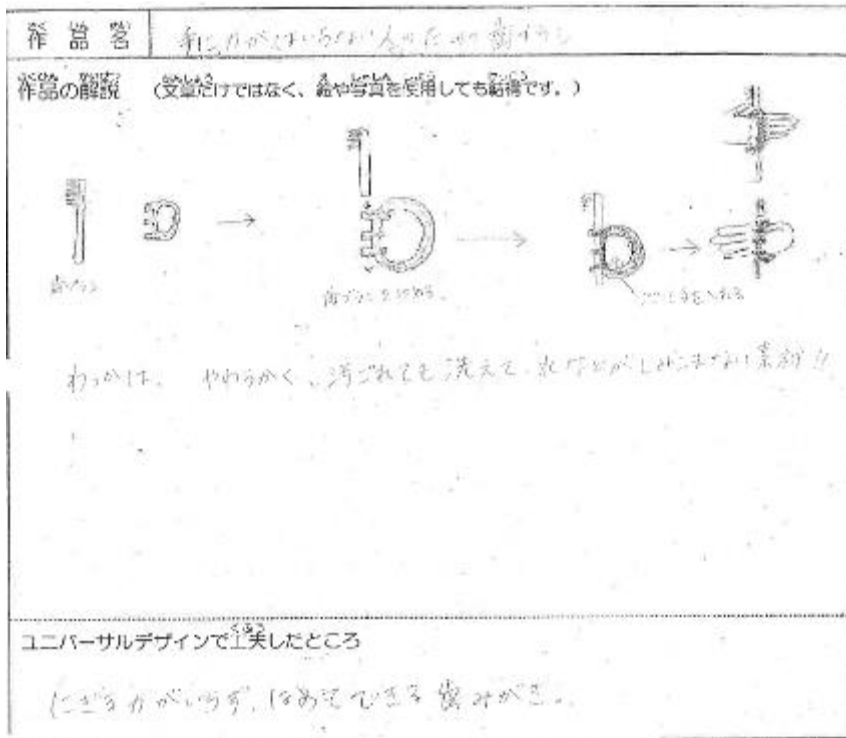 作品名 手に力がはいらない人のための歯ブラシ
作品の解説 (文章だけではなく、絵や写真を使用しても結構です。)
歯ブラシ
歯ブラシをはめる。
ここに手を入れる
わっかは、やわらかく、汚ごれても洗えて、水などがしみこまない素材!!
ユニバーサルデザインで工夫したところ
くふう
にぎる力がいらず、はめてできる歯みがき。